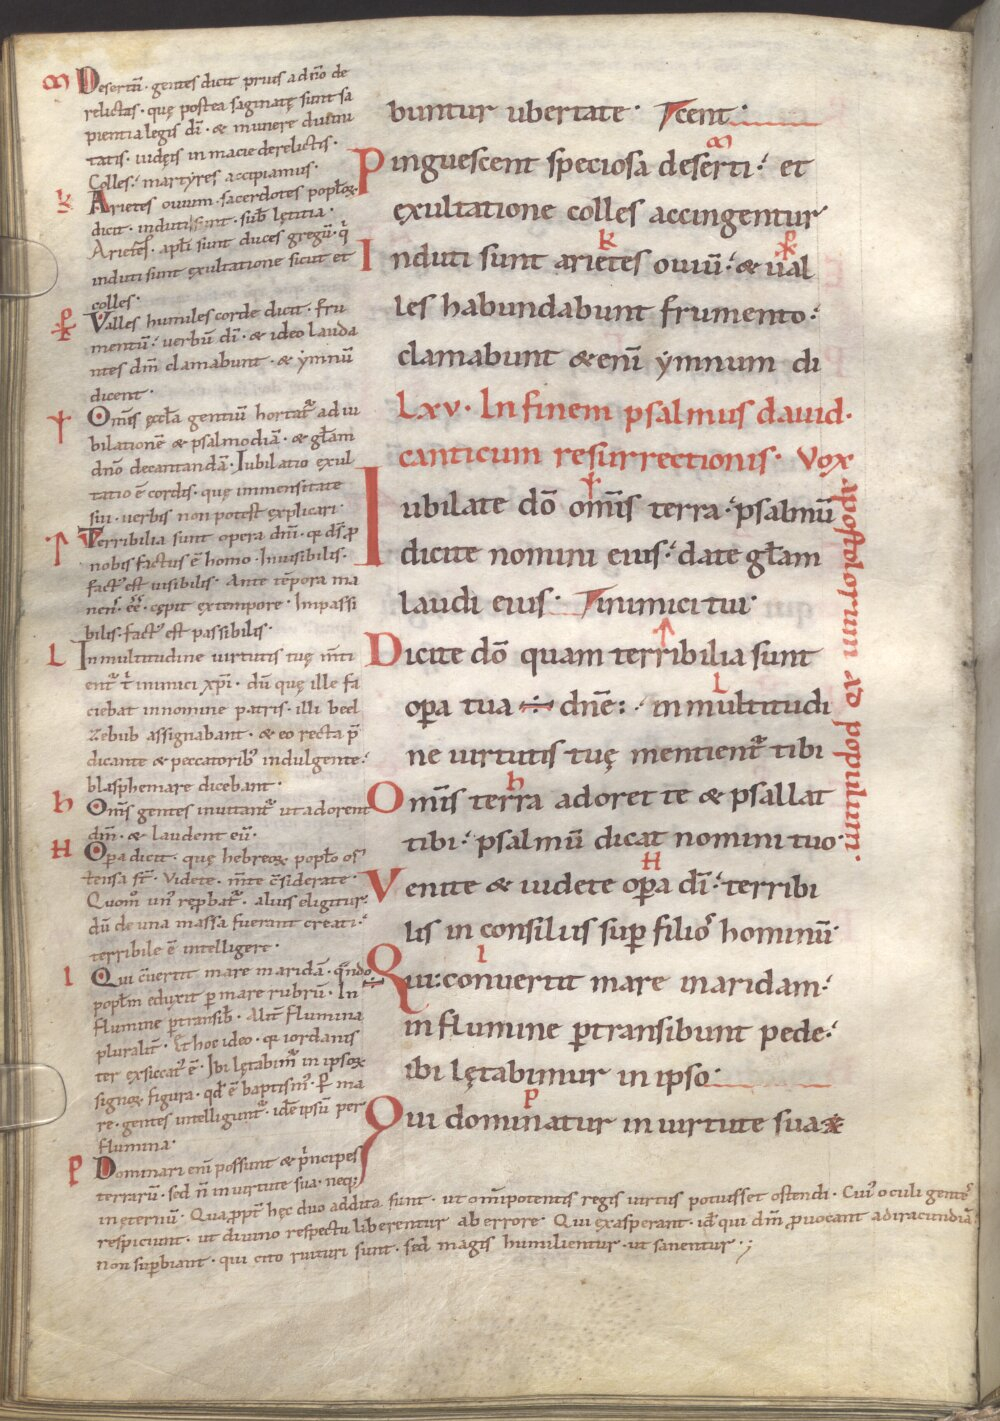 Desertū· gentes dicit prius a dn̄o de
relictas· quę postea saginatę sunt sa
pientia legis dī· & munere diuini
tatis· uidęis in macie derelictis·
Colles: martyres accipiamus·
Arietes ouium· sacerdotes popłoꝝ
dicit· induti sunt· sub lętitia·
Arietes· apłi sunt duces gregū· q̇
induti sunt exultatione sicut et
colles·
Valles humiles corde dicit· fru
mentū: uerbū dī· & ideo lauda
ntes dm̄ clamabunt· & ẏmnū
dicent·
Om̄is ęccła gentiū hortat᷑ ad iu
bilationē & psalmodiā· & głam
dn̄o decantandā· Iubilatio exul
tatio ē cordis· quę immensitate
sui· uerbis non potest explicari·
Terribilia sunt opera dn̄i· q; ds̄ ꝓ
nobis factus ē homo· Inuisibilis·
fact᾽ est uisibilis· Ante tēpora ma
nen᾽· cępit ex tempore· Impassi
bilis· fact᾽ est passibilis·
In multitudine uirtutis tuę m̄ti
ent᷑ t̄ inimici xp̄i· dū quę ille fa
ciebat in nomine patris· illi bel
zebub assignabant· & eo recta p̄
dicante & peccatorib᾽ indulgente:
blasphemare dicebant·
Om̄s gentes inuitant᷑ ut adorent
dm̄· & laudent eū·
Opa dicit· quę hebreoꝝ popło os
tensa st̄· Videte· m̄te c̄siderate·
Quom̄ un᾽ rep̄bat᷑· alius eligitur·
dū de una massa fuerant creati:
terribile ē intelligere·
Qui c̄uertit mare in aridā· qn̄do
popłm eduxit p mare rubrū· In
flumine p̄transib̄· Alit̄ flumina
pluralit̄· Et hoc ideo· q; iordanis
ter exsiccat᾽ ē· Ibi lętabim᷑ in ipso
signoꝝ figura· qd̄ ē baptism᾽· P ma
re· gentes intelligunt᷑· idē ipsū per
flumina·
Dominari enī possunt & p̄ncipes
terrarū· sed n̄ in uirtute sua· neq;
in ęternū· Quapp̄t hęc duo addita sunt· ut om̄ipotentis regis uirtus potuisset ostendi· Cui᾽ oculi gentes
respiciunt· ut diuino respectu liberentur ab errore· Qui exasperant· id ÷ qui dm̄ ꝓuocant ad iracundiā·
non supbiant· qui cito ruituri sunt· sed magis humilientur· ut sanentur·;
buntur ubertate· cent·
Pinguescent speciosa deserti: et
exultatione colles accingentur
Induti sunt arietes ouiū: & ual
les habundabunt frumento:
clamabunt & enī ẏmnum di
Lxv· In finem psalmus dauid·
canticum resurrectionis· Vox
apostolorum ex populum·
Iubilate dō om̄is terra: psalmū
dicite nomini eius: date głam
laudi eius· inimici tui·
Dicite dō quam terribilia sunt
opa tua ÷ dn̄e: · in multitudi
ne uirtutis tuę mentient᷑ tibi
Om̄is terra adoret te & psallat
tibi: psalmū dicat nomini tuo·
Venite & uidete opa dī: terribi
lis in consiliis sup filio᾽ hominū·
Qui: conuertit mare in aridam:
in flumine ptransibunt pede:
ibi lętabimur in ipso·
Qui dominatur in uirtute sua